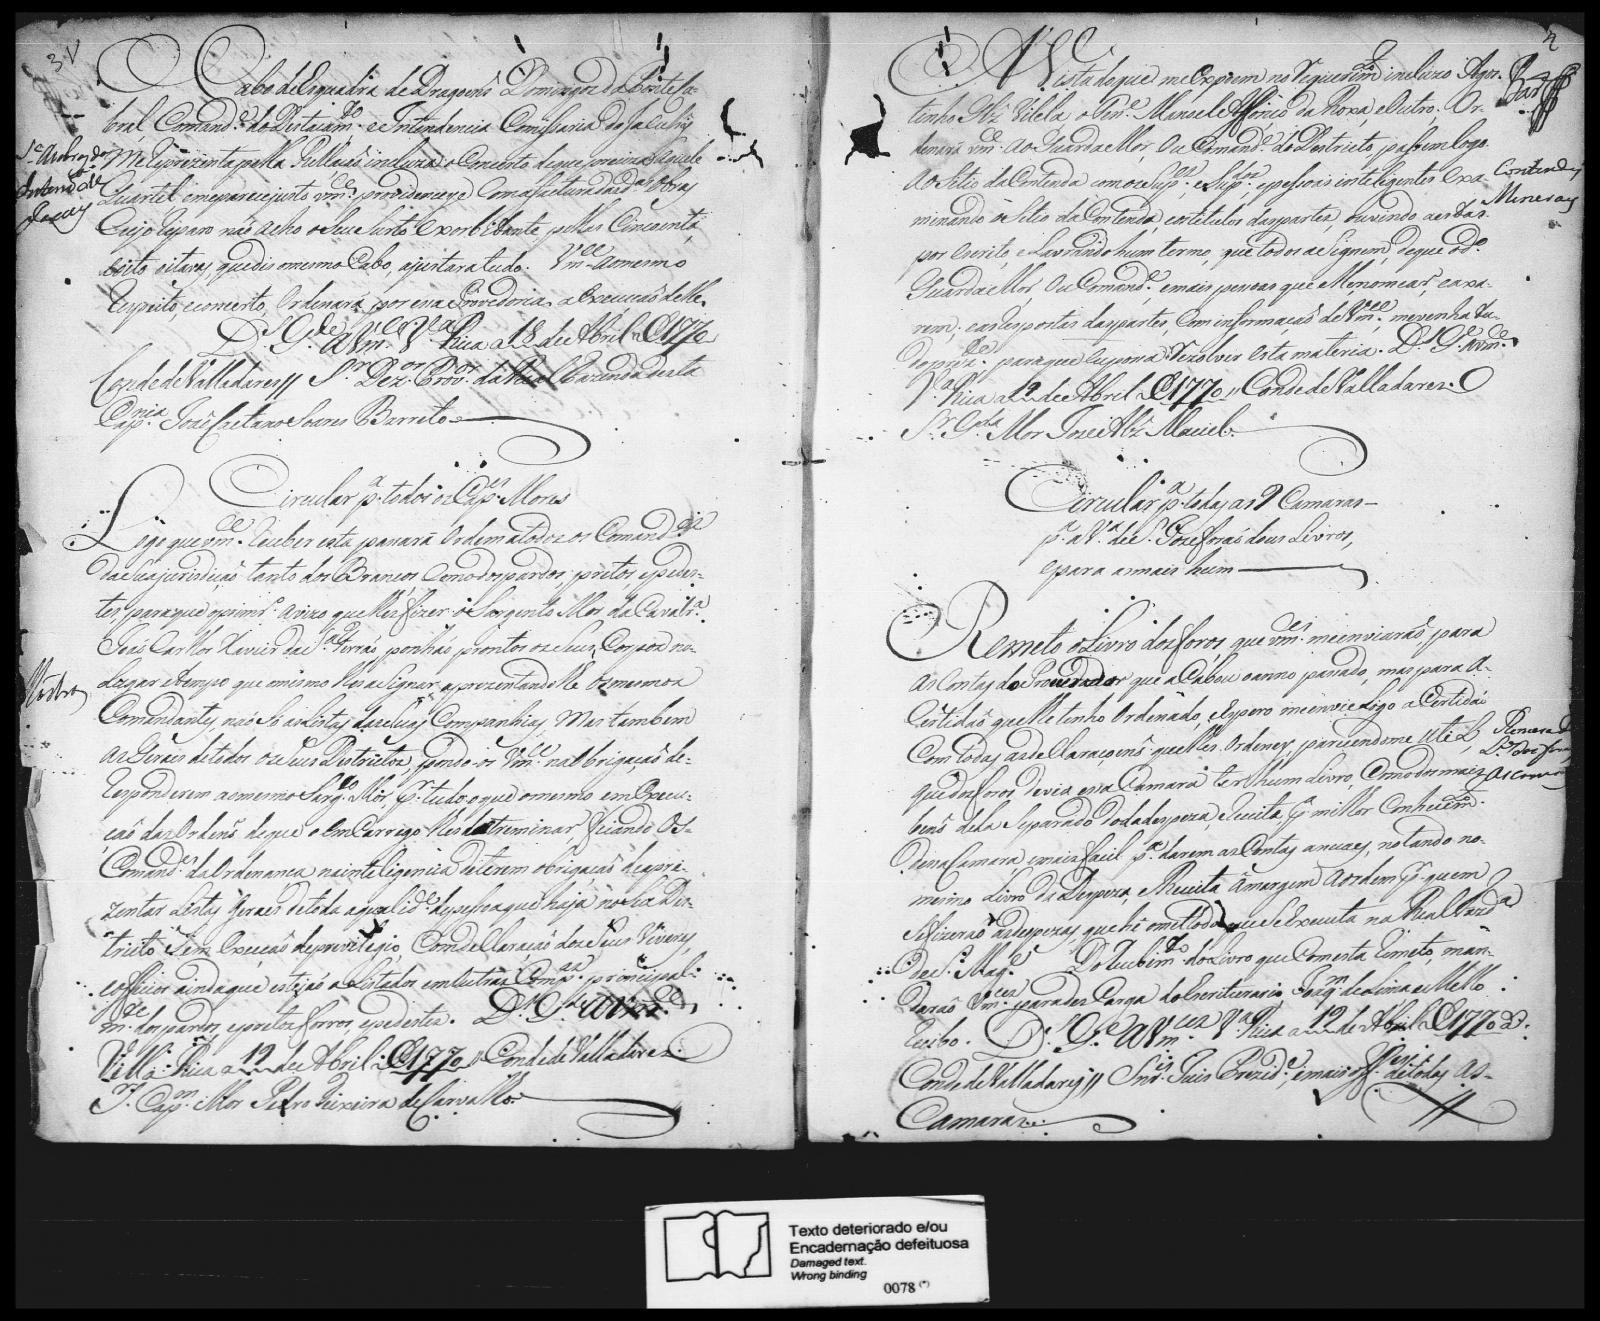 3V
O Cabo de Esquadra de Dragoens Domingos da Ponte Sa-
bral Comand.e do Destacam.to e Intendencia Comissaria do Jacuhy
Me Reprezenta pella Rellação incluza o Concerto de que preciza aquele
Quartel eme parece justo vm.ce providenceye Com a factura das d.as Obras
Cujo reparo não acho o Seu Custo exorbitante pellas Cincoenta,
eoito oitavas, que diz omesmo Cabo, ajustara tudo. Vm.ce ao mesmo
respeito, e concerto, Ordenará por essa Provedoria a Execução delle.
D.s G.de a Vm.ce V.a Rica a 18 de Abril de 1770
Conde de Valladares // S.r Dez.or Prov.or da Real Fazenda desta
Cap.nia João Caetano Soares Barreto
Circular p.a todos os Cap.es Mores
Logo que vm.ce receber esta passará Ordem a todos os Comand.es
da Sua jurisdição tanto dos Brancos Como dos pardos, pretos, e pedes-
tes, para que oprimr.o avizo que lhes fizer o Sargento Mor da Cavalr.a
João Carlos Xavier da S.a Ferrão, ponhão promptos os Seus Corpos no
Lugar e tempo que o mesmo lhes asignar, aprezentandolhe os mesmos
Comandantes não Só as Listas das Suas Companhias, Mas tambem
as Gerais de todos os Seus Destrictos, pondo-os Vm.ce na obrigação de-
Responderem ao mesmo Sarg.to Mór, p.r tudo o que o mesmo em Execu-
ção das Ordens de que o emCarrego lhes detreminar, ficando os-
Comand.es da Ordenança na inteligencia de terem obrigação de apre-
zentar Listas Geraes de toda aqualid.e de pessoa que haja no Seu Des-
tricto Sem Exceção de previlegio, Com declaração dos Seus Viveres,
eofficios ainda que estejão alistados em outras Comp.as principal-
m.te dos pardos, e pretos forros, e pedestes. D.s G.de a Vm.ce
Villa Rica a 12 de Abril de 1770 // Conde de Valladares.
S.r Cap.m Mor Pedro Teixeira de Carvalho
4
Vista do que me Expoem no Requerim.to incluzo Agos-
tinho Glz Vilela o Ten.e Manoel Affonso da Roxa, e Outro, Or-
denará vm.ce ao Guarda Mór, Ou Comand.e do Destricto, passem logo
ao Sitio da Contenda com os
e pessoas inteligentes Exa-
minando o Sitio da Contenda, e os titulos das partes, ouvindo a estas
por escrito, e Lavrando hum termo, que todos aSignem, de que o d.o
Guarda Mór, Ou Comand.e, e mais pessoas que Menomear, exa-
rem, e as respostas das partes, Com informação de Vm.ce, me venha tu-
do
para que eu possa Rezolver esta materia. D.s G.de a vm.ce
V.a Rica a 12 de Abril de 1770 // Conde de Valladares.
S.r G.da Mor Joze Alz Maciel.
Contendas
Mineraes
Circular p.a todas as Camaras
p.a a V.a de S. Joze forão dous Livros,
e para as mais hum
Remeto o Livro dos foros que vm.ces me enviarão, para
as Contas do Procurador que aCabou o anno passado, mas para a-
Certidão que lhe tenho Ordenado, espero me envie Logo a Certidão
Com todas as declaraçoens que lhes Ordeney, parecendome util,
que dos foros, devia essa Camara ter hum Livro, Como dos mais
bens dela Separado, toda despeza, e Receita, p.a milhor Conhecim.to
dessa Camara e mais facil p.a darem as Contas annuaes, notando no-
mesmo Livro da Despeza, e Receita á margem a ordem p.r quem
Se fizerão as despezas, que he o methodo que Se Executa na Real Fazd.a
de S. Mag.e Do recebim.to do Livro que Com esta Remeto, man-
darão Vm.ces para des Carga do Escriturario Joaq.m de Lima e Mello
Recibo. D.s G.e a Vm.ces V.a Rica a 12 de Abril de 1770
Conde de Valladares // Snr.es Juis Prezid.e, e mais off.es de todas as-
Camaras.
Texto deteriorado e/ou
Encadernação defeituosa
Damaged text.
Wrong binding
0078 (*)